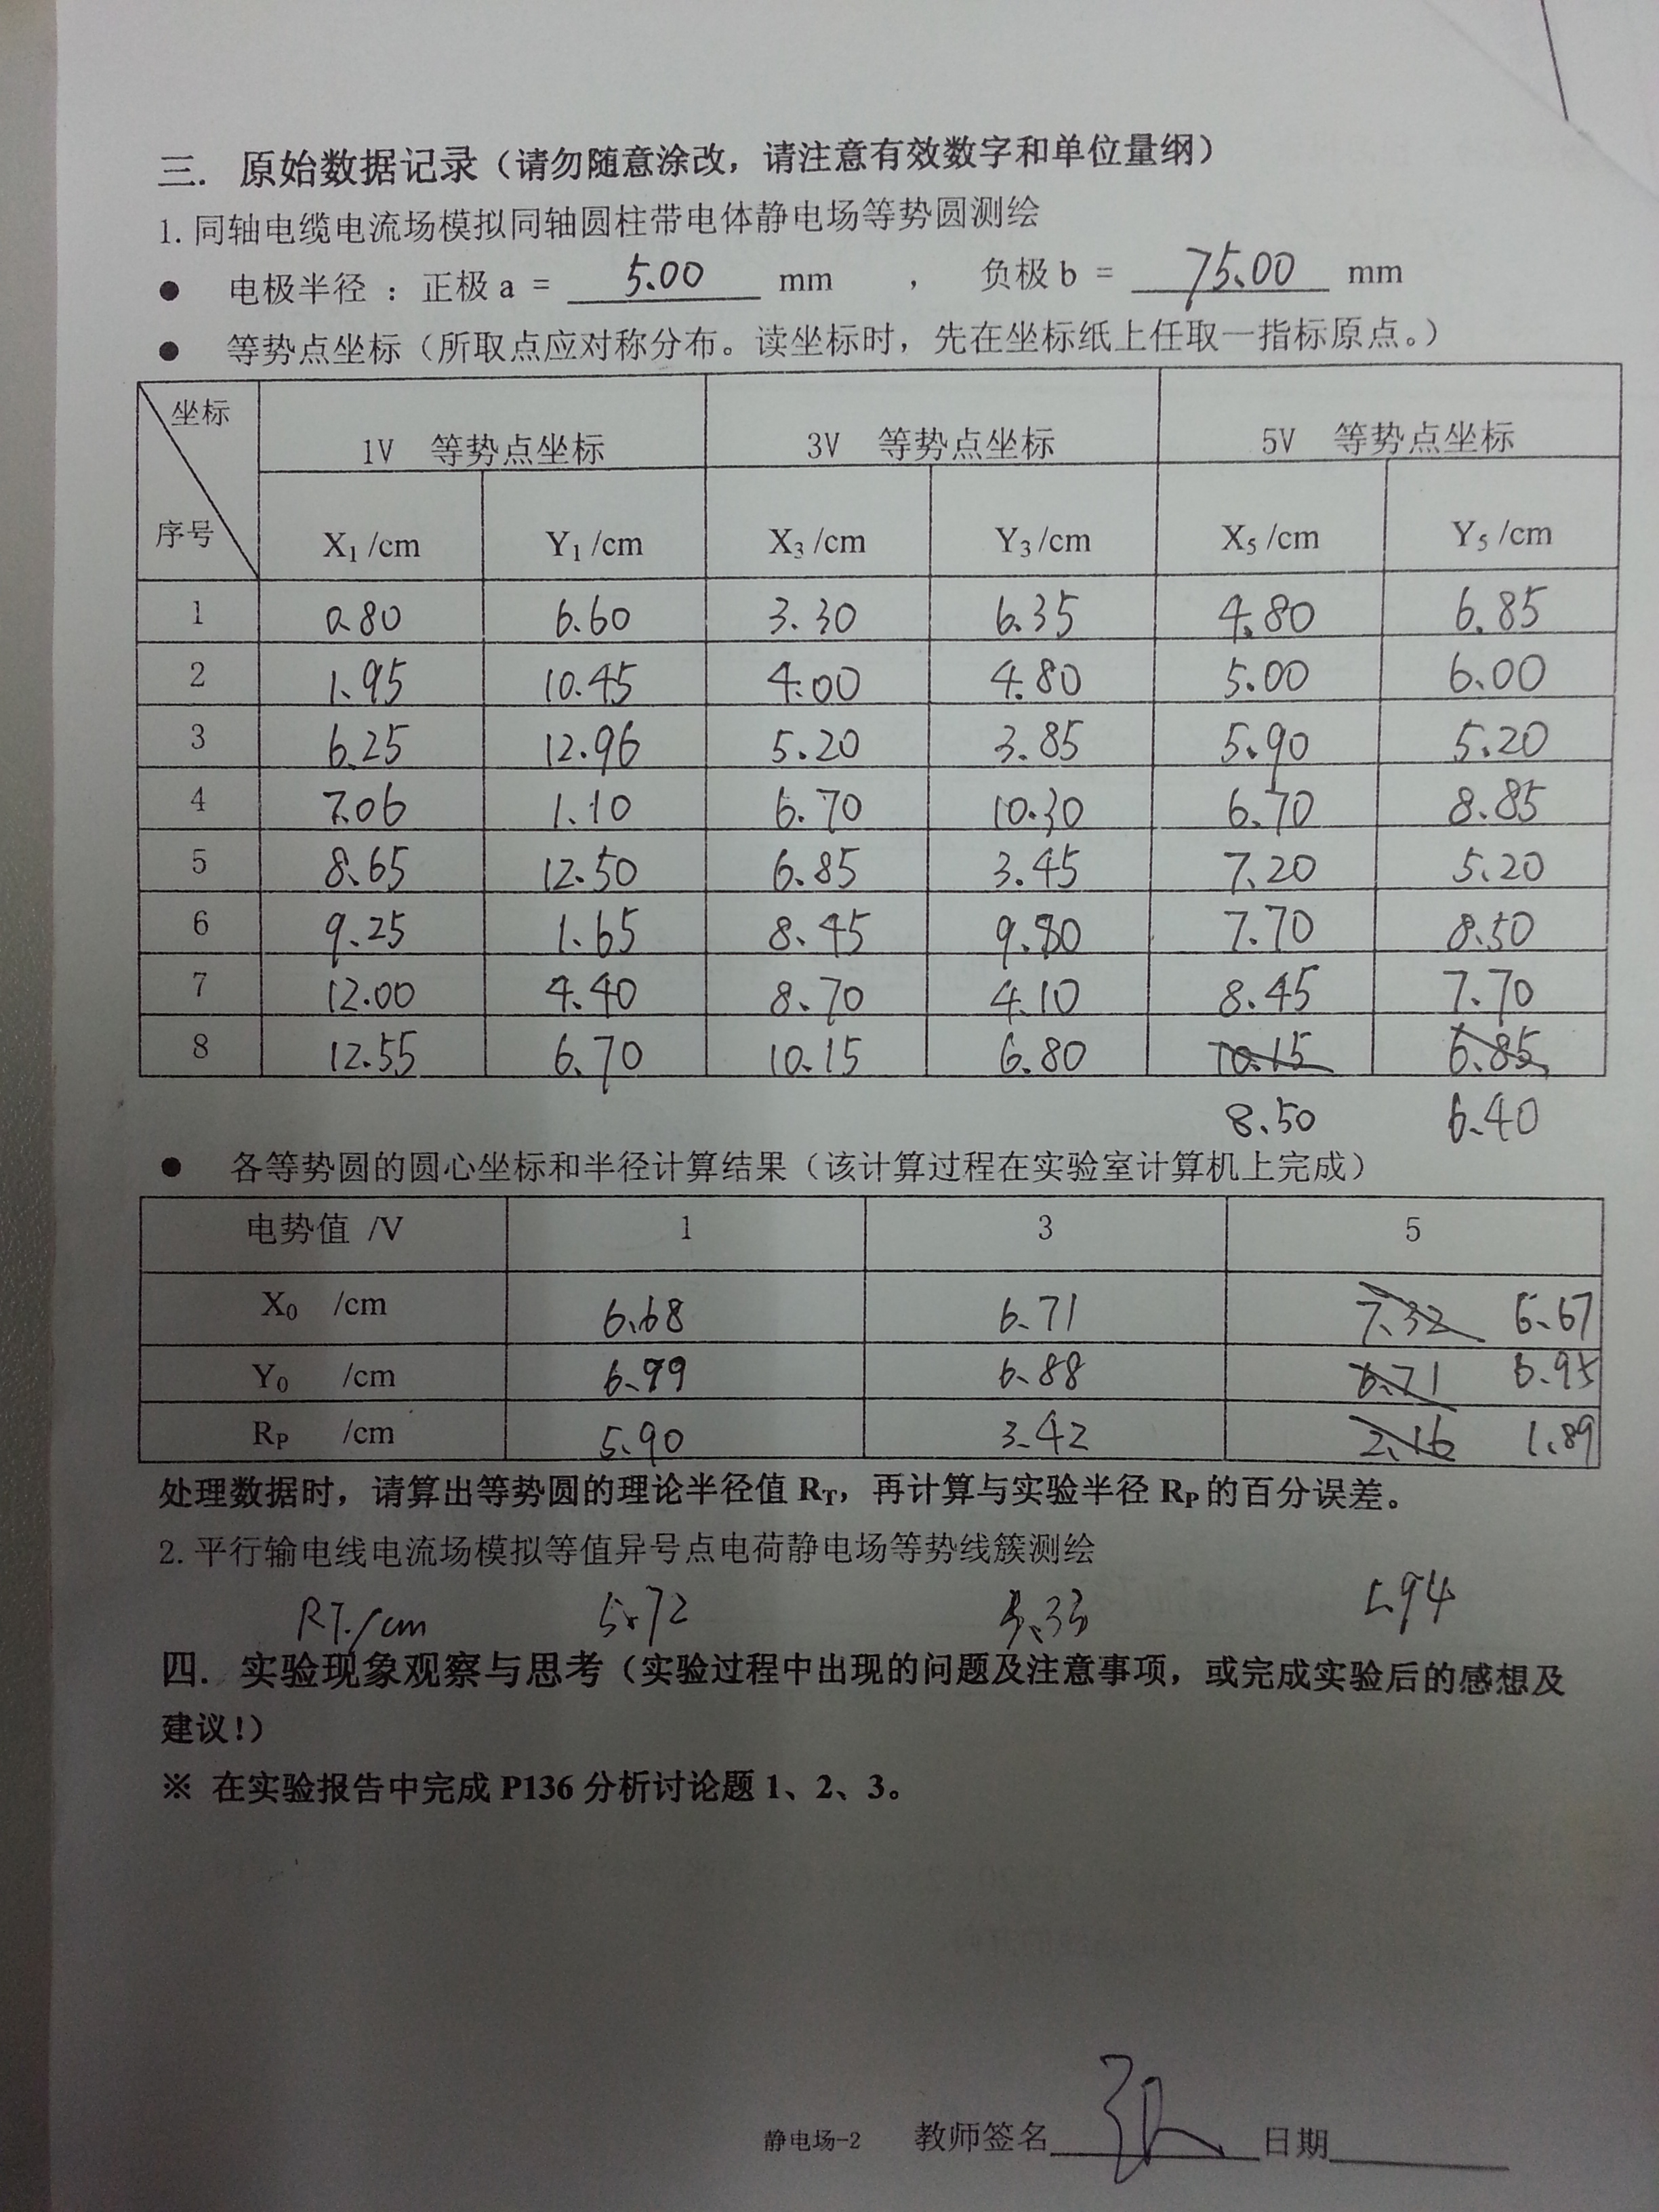 三. 原始数据记录（请勿随意涂改，请注意有效数字和单位量纲）
1. 同轴电缆电流场模拟同轴圆柱带电体静电场等势圆测绘
● 电极半径 ：正极 a = 5.00 mm ， 负极 b = 75.00 mm
● 等势点坐标（所取点应对称分布。读坐标时，先在坐标纸上任取一指标原点。）
坐标 1V 等势点坐标 3V 等势点坐标 5V 等势点坐标
序号 X1 /cm Y1 /cm X3 /cm Y3 /cm X5 /cm Y5 /cm
1 0.80 6.60 3.30 6.35 4.80 6.85
2 1.95 10.45 4.00 4.80 5.00 6.00
3 6.25 12.96 5.20 3.85 5.90 5.20
4 7.06 1.10 6.70 10.30 6.70 8.85
5 8.65 12.50 6.85 3.45 7.20 5.20
6 9.25 1.65 8.45 9.80 7.70 8.50
7 12.00 4.40 8.70 4.10 8.45 7.70
8 12.55 6.70 10.15 6.80 10.15 6.85
8.50 6.40
● 各等势圆的圆心坐标和半径计算结果（该计算过程在实验室计算机上完成）
电势值 /V 1 3 5
X0 /cm 6.68 6.71 7.32 6.67
Y0 /cm 6.99 6.88 6.71 6.95
RP /cm 5.90 3.42 2.16 1.89
处理数据时，请算出等势圆的理论半径值 RT，再计算与实验半径 RP 的百分误差。
2. 平行输电线电流场模拟等值异号点电荷静电场等势线簇测绘
RT./cm 5.72 3.33 1.94
四. 实验现象观察与思考（实验过程中出现的问题及注意事项，或完成实验后的感想及
建议!）
※ 在实验报告中完成 P136 分析讨论题 1、2、3。
静电场-2 教师签名 日期